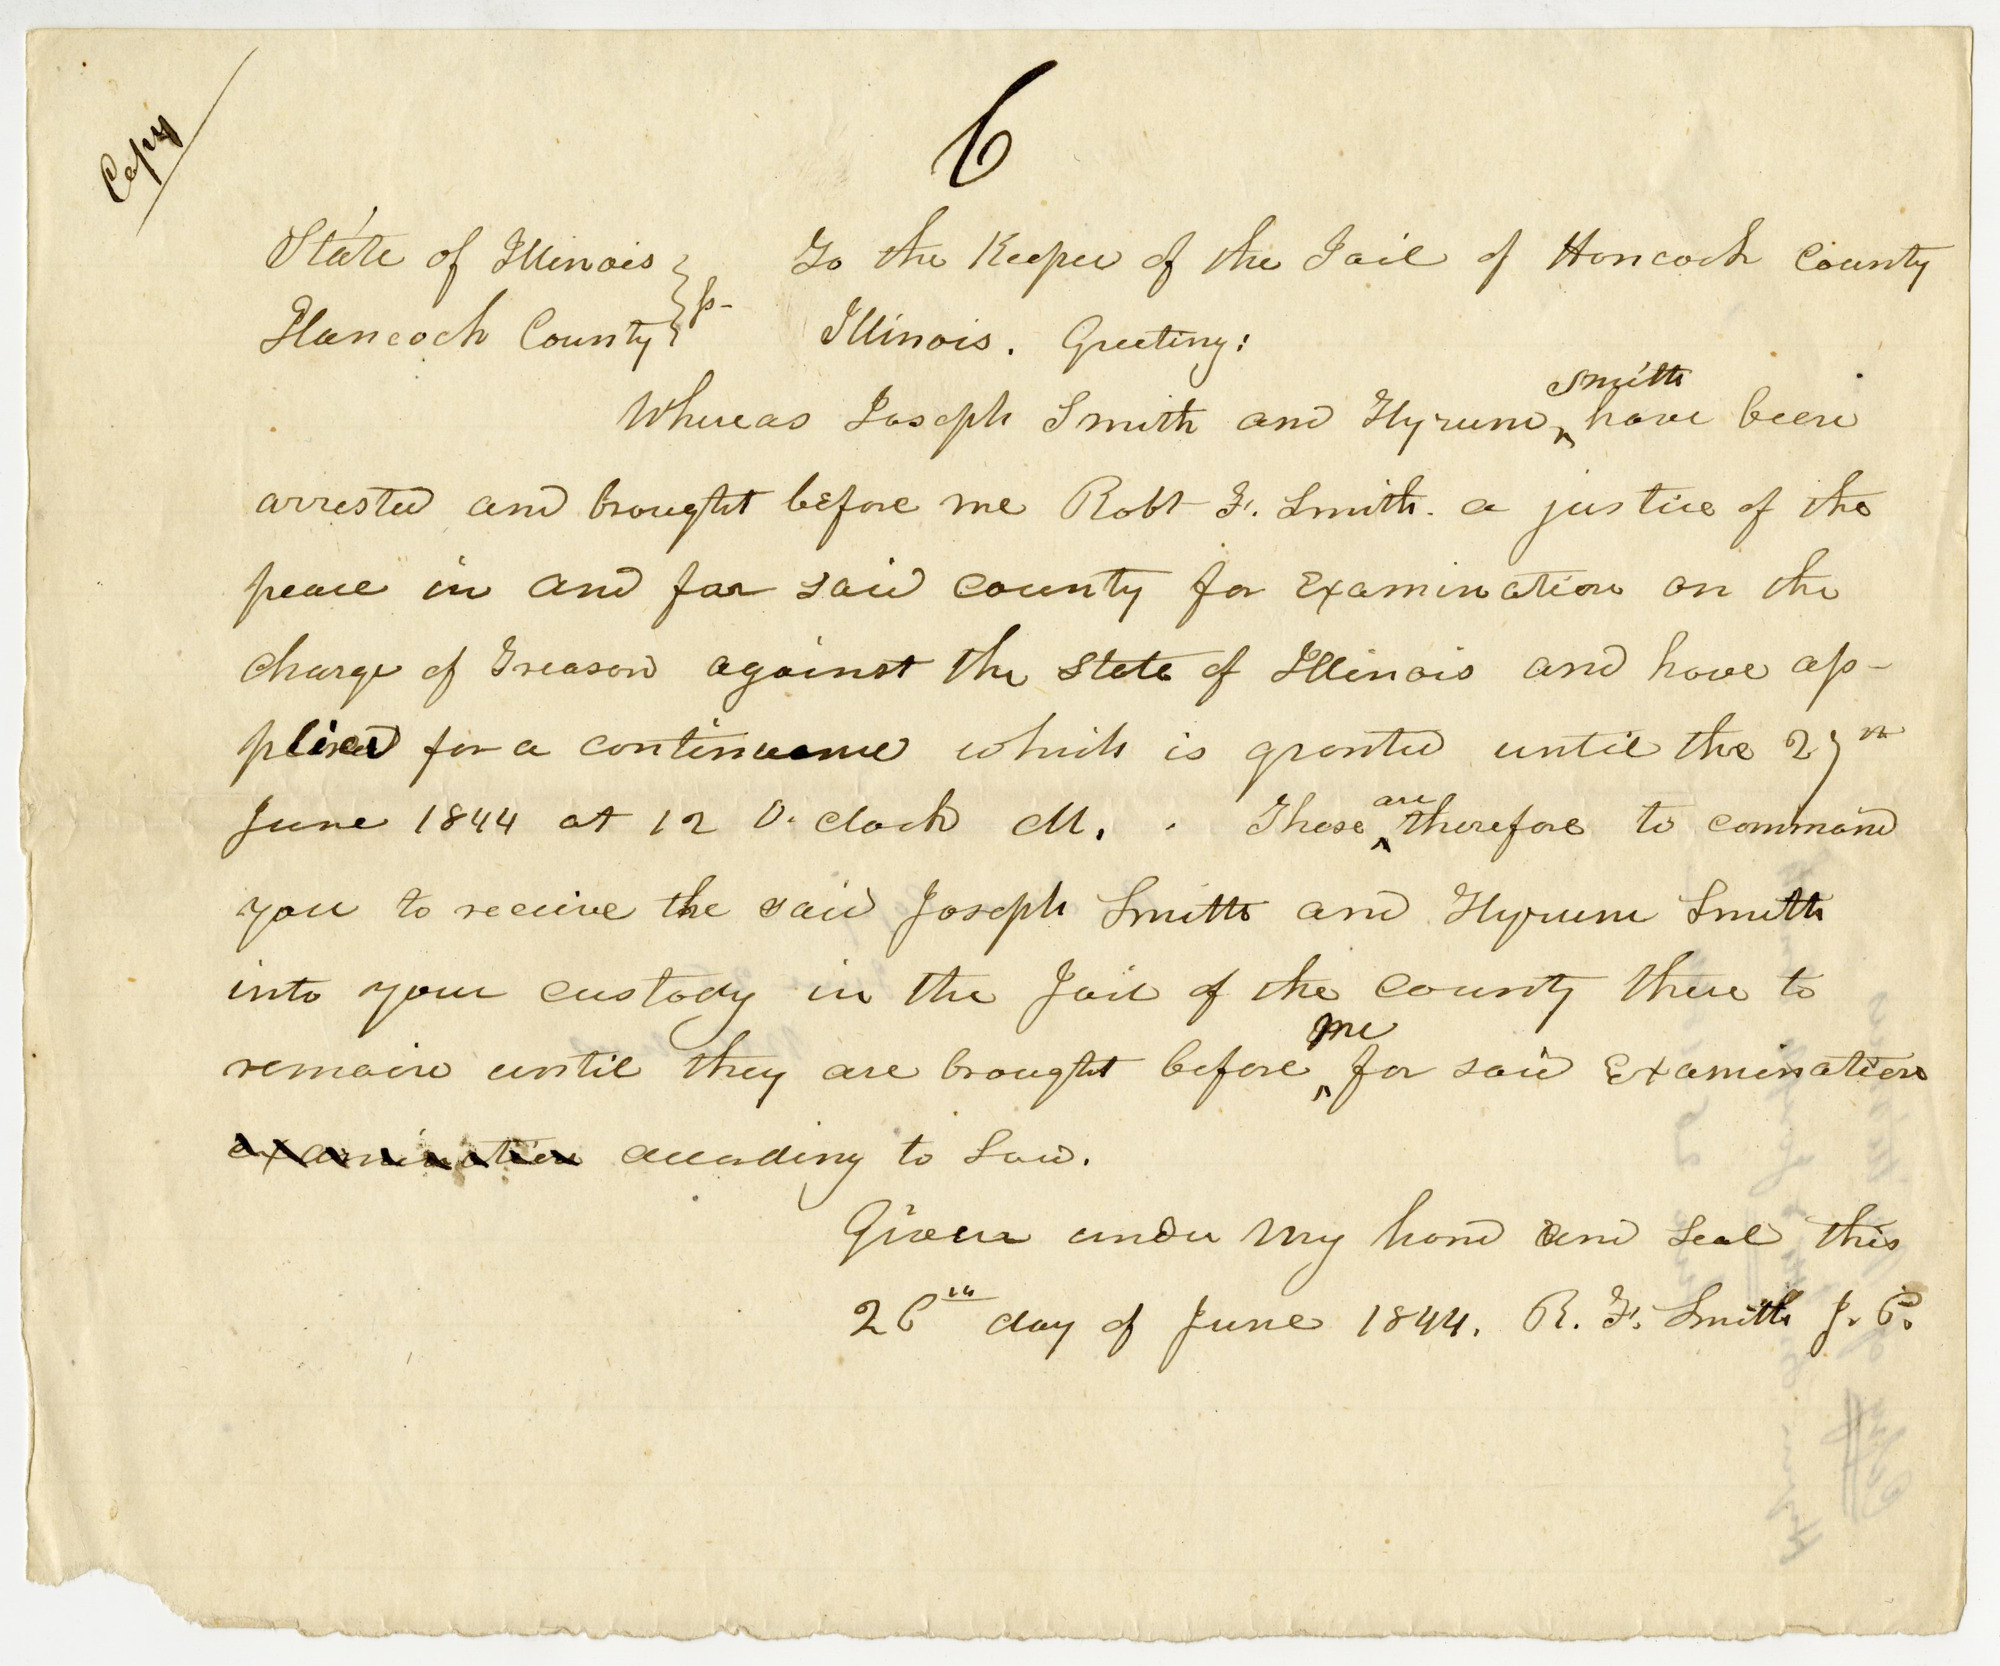 Copy
6
State of Illinois } ss- To the Keeper of the Jail of Hancock County
Hancock County } Illinois. Greeting:
Smith
Whereas Joseph Smith and Hyrum ^ have been
arrested and brought before me Robt F. Smith. a justice of the
peace in and for said county for Examination on the
charge of Treason against the State of Illinois and have ap-
plied for a continuance which is granted until the 27th
June 1844 at 12 O. clock M. . These ^are therefore to command
you to receive the said Joseph Smith and Hyrum Smith
into your custody in the Jail of the county there to
remain until they are brought before ^me for said Examination
examination according to Law.
Given under my hand and Seal this
26th day of June 1844. R. F. Smith J. P.